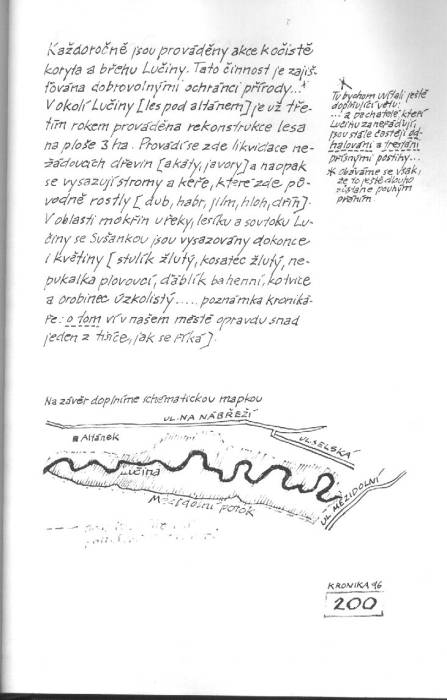 Každoročně jsou prováděny akce k očistě
koryta a břehu Lučiny. Tato činnost je zajiš-
ťována dobrovolnými ochránci přírody...*
V okolí Lučiny [les pod altánem] je už tře-
tím rokem prováděna rekonstrukce lesa
na ploše 3 ha. Provádí se zde likvidace ne-
žádoucích dřevin [akáty, javory] a naopak
se vysazují stromy a keře, které zde pů-
vodně rostly [dub, habr, jilm, hloh, dřín].
V oblasti mokřin u řeky, lesíku a soutoku Lu-
činy se Sušankou jsou vysazovány dokonce
i květiny [stulík žlutý, kosatec žlutý, ne-
pukalka plovoucí, ďáblík bahenní, kotvice
a orobinec úzkolistý..... poznámka kroniká-
ře: o tom ví v našem městě opravdu snad
jeden z tisíce, jak se říká].
*
Tu bychom uvítali ještě
doplňující větu:
... a pachatelé, kteří
Lučinu zanepáďují,
jsou stále častěji od-
halováni a trestáni
přísnými postihy...
* Obáváme se však,
že to ještě dlouho
zůstane pouhým
přáním.
Na závěr doplníme schématickou mapkou
UL. NA NÁBŘEŽÍ
UL. SELSKÁ
Altánek
Lučina
Mezidolní potok
UL. MEZIDOLNÍ
KRONIKA 96
200